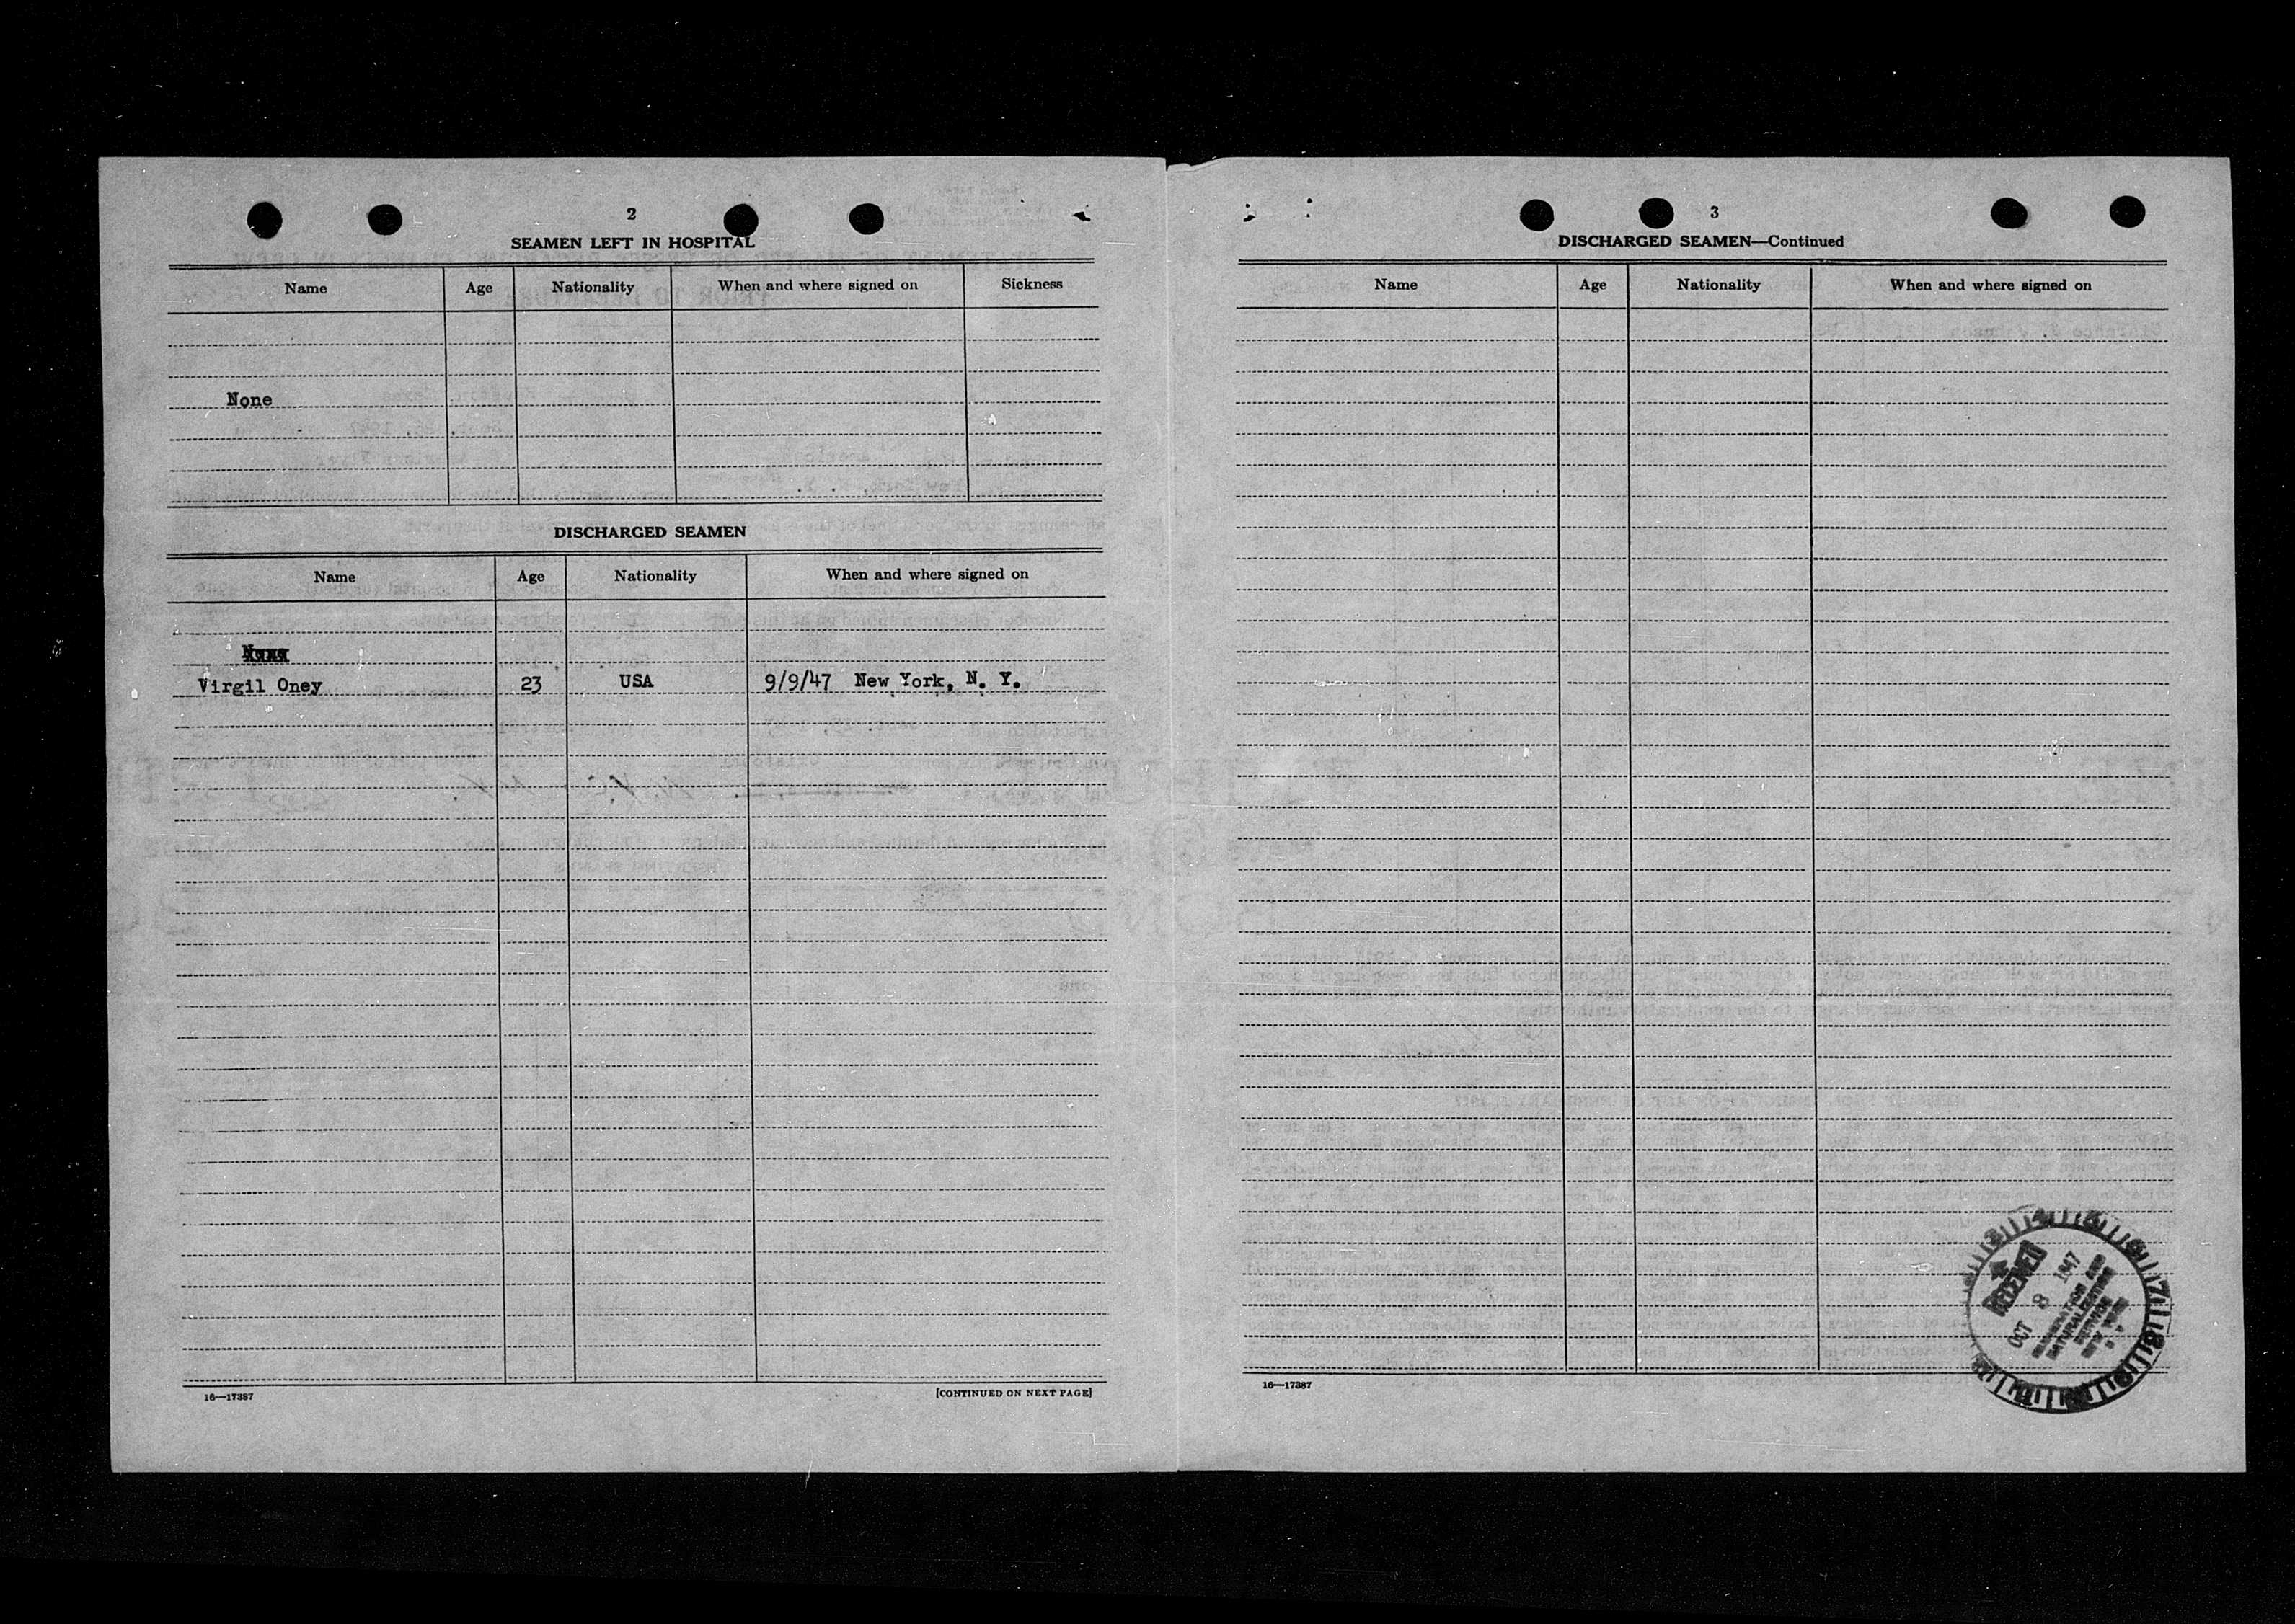 2
SEAMEN LEFT IN HOSPITAL
Name Age Nationality When and where signed on Sickness
None
DISCHARGED SEAMEN
Name Age Nationality When and where signed on
Virgil Oney 23 USA 9/9/47 New York, N. Y.
16—17387 [CONTINUED ON NEXT PAGE]
3
DISCHARGED SEAMEN—Continued
Name Age Nationality When and where signed on
RECEIVED
OCT 8 1947
IMMIGRATION AND
NATURALIZATION
SERVICE
NEW YORK
N. Y.
16—17387